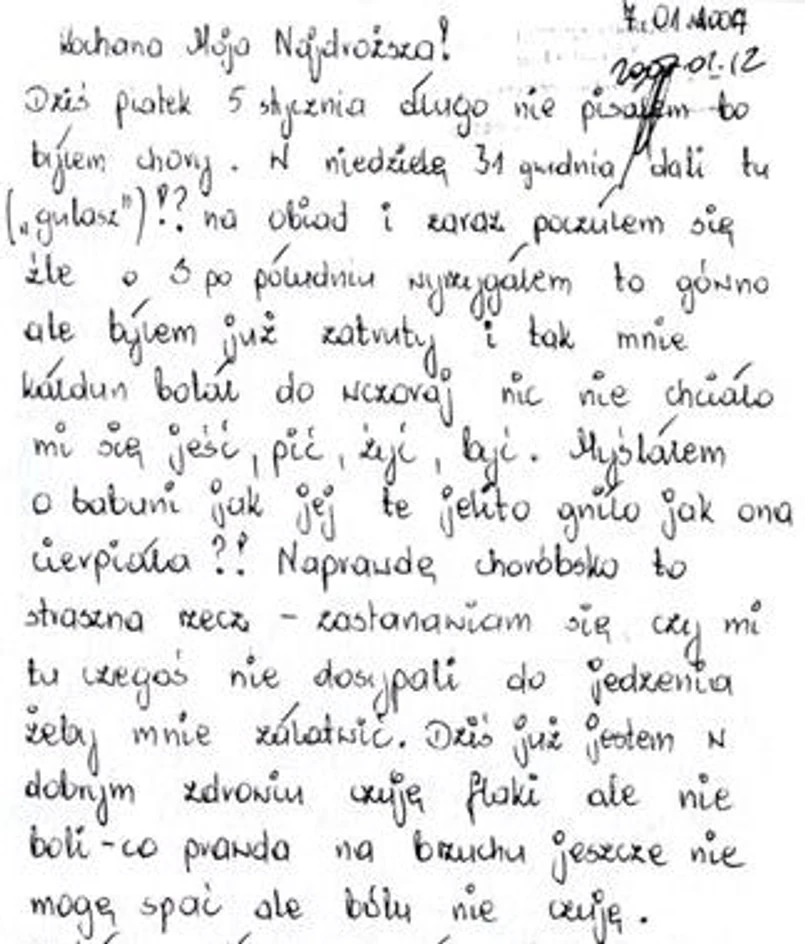 7.01.2007
Kochana Moja Najdroższa!
2007-01-12
Dziś piątek 5 stycznia długo nie pisałem bo
byłem chory. W niedzielę 31 grudnia dali tu
(„gulasz")!? na obiad i zaraz poczułem się
źle o 3 po południu wyrzygałem to gówno
ale byłem już zatruty i tak mnie
kałdun bolał do wczoraj nic nie chciało
mi się jeść, pić, żyć, być. Myślałem
o babuni jak jej te jelito gniło jak ona
cierpiała?! Naprawdę choróbsko to
straszna rzecz - zastanawiam się czy mi
tu czegoś nie dosypali do jedzenia
żeby mnie załatwić. Dziś już jestem w
dobrym zdrowiu czuję flaki ale nie
boli - co prawda na brzuchu jeszcze nie
mogę spać ale bólu nie czuję.